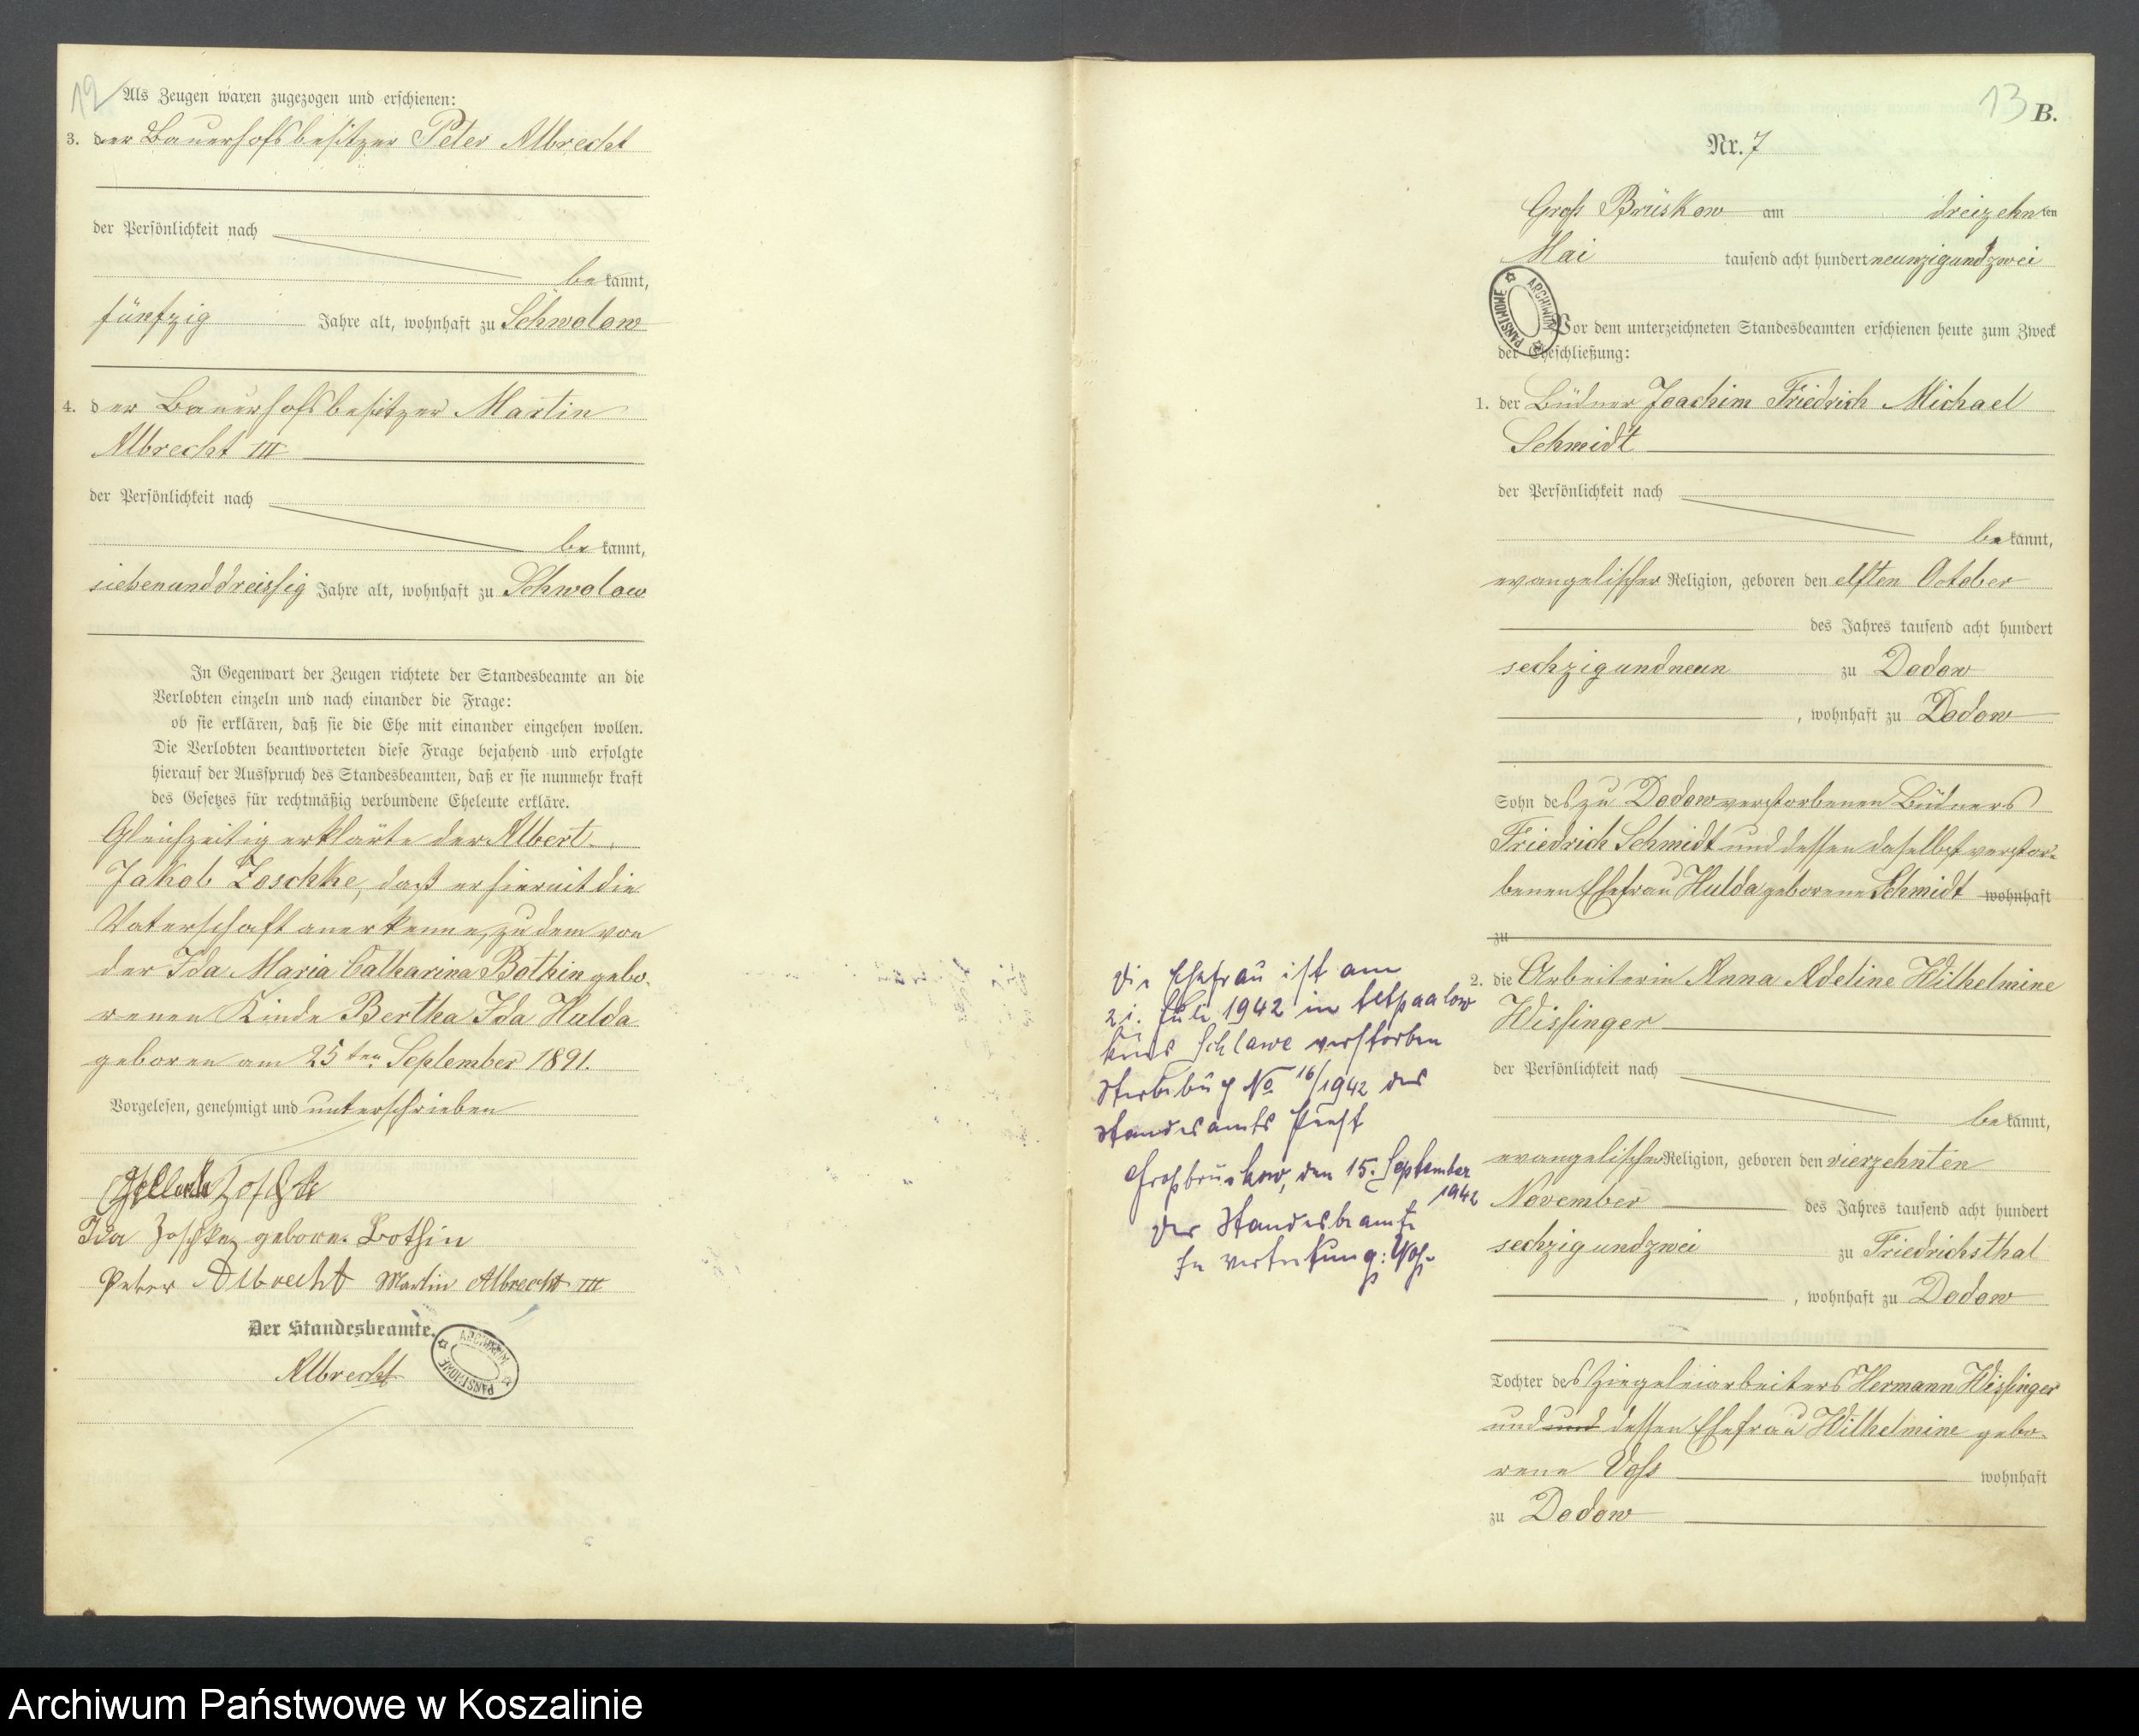 12
Als Zeugen waren zugezogen und erschienen:
3. der Bauerhofsbesitzer Peter Albrecht
der Persönlichkeit nach
be kannt,
fünfzig Jahre alt, wohnhaft zu Schwolow
4. der Bauerhofsbesitzer Martin
Albrecht III
der Persönlichkeit nach
be kannt,
siebenunddreissig Jahre alt, wohnhaft zu Schwolow
In Gegenwart der Zeugen richtete der Standesbeamte an die
Verlobten einzeln und nach einander die Frage:
ob sie erklären, daß sie die Ehe mit einander eingehen wollen.
Die Verlobten beantworteten diese Frage bejahend und erfolgte
hierauf der Ausspruch des Standesbeamten, daß er sie nunmehr kraft
des Gesetzes für rechtmäßig verbundene Eheleute erkläre.
Gleichzeitig erklärte der Albert
Jakob Zoschke, daß er hiermit die
Vaterschaft anerkenne, zu dem von
der Ida Maria Catharina Bothin gebo-
renen Kinde Bertha Ida Hulda
geboren am 25ten September 1891.
Vorgelesen, genehmigt und unterschrieben
Zoschke
Ida Zoschke geborn. Bothin
Peter Albrecht Martin Albrecht III
Der Standesbeamte.
Albrecht
ARCHIWUM PAŃSTWOWE
13
B.
Nr. 7
Groß Brüskow am dreizehnten
Mai tausend acht hundert neunzigundzwei
ARCHIWUM PAŃSTWOWE
Vor dem unterzeichneten Standesbeamten erschienen heute zum Zweck
der Eheschließung:
1. der Büdner Joachim Friedrich Michael
Schmidt
der Persönlichkeit nach
be kannt,
evangelischer Religion, geboren den elften October
des Jahres tausend acht hundert
sechzigundneun zu Dodow
, wohnhaft zu Dodow
Sohn des zu Dodow verstorbenen Büdners
Friedrich Schmidt und dessen daselbst verstor-
benen Ehefrau Hulda geborene Schmidt wohnhaft
zu
2. die Arbeiterin Anna Adeline Wilhelmine
Wissinger
der Persönlichkeit nach
be kannt,
evangelischer Religion, geboren den vierzehnten
November des Jahres tausend acht hundert
sechzigundzwei zu Friedrichsthal
, wohnhaft zu Dodow
Tochter des Ziegeleiarbeiters Hermann Wissinger
und und dessen Ehefrau Wilhelmine gebo-
rene Voß wohnhaft
zu Dodow
Die Ehefrau ist am
21. Juli 1942 in
Kreis Schlawe verstorben
Sterbebuch No 16/1942 des
Standesamts
Großbrüskow, den 15. September
1942
Der Standesbeamte
In Vertretung:
Archiwum Państwowe w Koszalinie